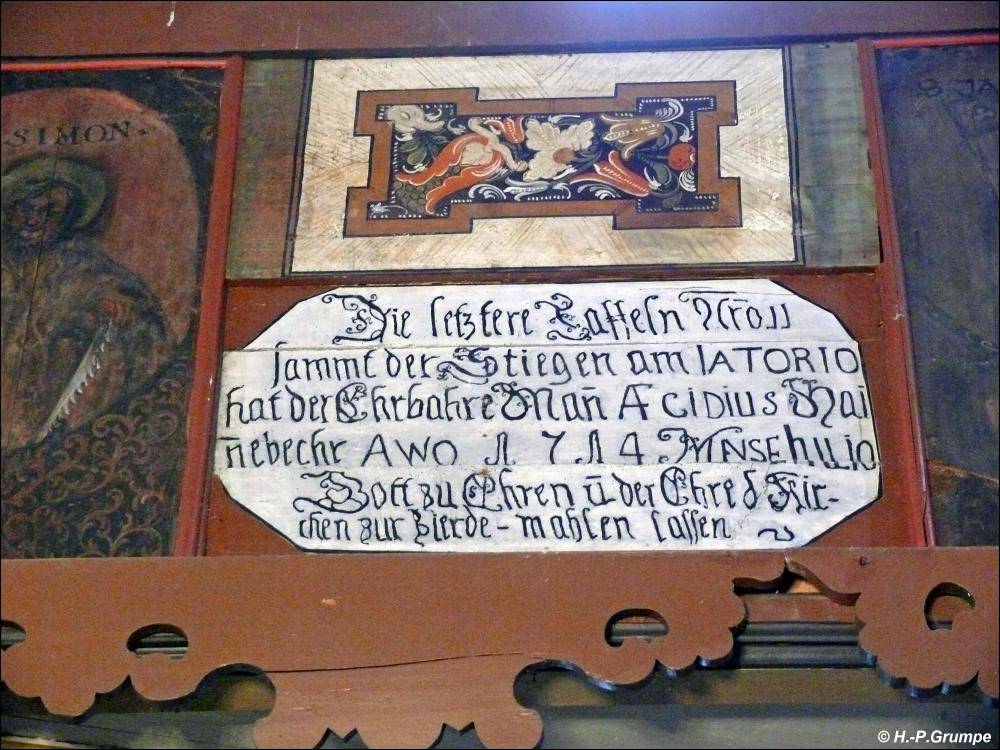 SIMON
S JA
Die letztere Taffeln
sammt der Stiegen am IATORIO
hat der Ehrbahre Mañ ÆCIDIUS Hai
ñebechr AWO 1714
Gott zu Ehren ü der Ehre d Kir-
chen zur Zierde - mahlen lassen
© H.-P.Grumpe